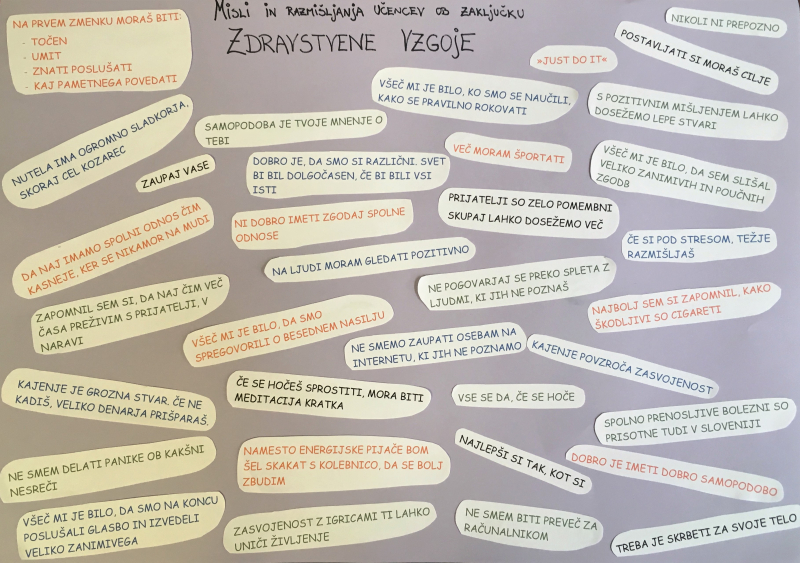 Misli in razmišljanja učencev ob zaključku
Zdravstvene vzgoje
NA PRVEM ZMENKU MORAŠ BITI:
- TOČEN
- UMIT
- ZNATI POSLUŠATI
- KAJ PAMETNEGA POVEDATI
NIKOLI NI PREPOZNO
POSTAVLJATI SI MORAŠ CILJE
»JUST DO IT«
VŠEČ MI JE BILO, KO SMO SE NAUČILI,
KAKO SE PRAVILNO ROKOVATI
S POZITIVNIM MIŠLJENJEM LAHKO
DOSEŽEMO LEPE STVARI
NUTELA IMA OGROMNO SLADKORJA,
SKORAJ CEL KOZAREC
SAMOPODOBA JE TVOJE MNENJE O
TEBI
ZAUPAJ VASE
DOBRO JE, DA SMO SI RAZLIČNI. SVET
BI BIL DOLGOČASEN, ČE BI BILI VSI
ISTI
VEČ MORAM ŠPORTATI
VŠEČ MI JE BILO, DA SEM SLIŠAL
VELIKO ZANIMIVIH IN POUČNIH
ZGODB
DA NAJ IMAMO SPOLNI ODNOS ČIM
KASNEJE, KER SE NIKAMOR NA MUDI
NI DOBRO IMETI ZGODAJ SPOLNE
ODNOSE
PRIJATELJI SO ZELO POMEMBNI
SKUPAJ LAHKO DOSEŽEMO VEČ
ČE SI POD STRESOM, TEŽJE
RAZMIŠLJAŠ
NA LJUDI MORAM GLEDATI POZITIVNO
NE POGOVARJAJ SE PREKO SPLETA Z
LJUDMI, KI JIH NE POZNAŠ
ZAPOMNIL SEM SI, DA NAJ ČIM VEČ
ČASA PREŽIVIM S PRIJATELJI, V
NARAVI
VŠEČ MI JE BILO, DA SMO
SPREGOVORILI O BESEDNEM NASILJU
NAJBOLJ SEM SI ZAPOMNIL, KAKO
ŠKODLJIVI SO CIGARETI
NE SMEMO ZAUPATI OSEBAM NA
INTERNETU, KI JIH NE POZNAMO
KAJENJE POVZROČA ZASVOJENOST
KAJENJE JE GROZNA STVAR. ČE NE
KADIŠ, VELIKO DENARJA PRIŠPARAŠ.
ČE SE HOČEŠ SPROSTITI, MORA BITI
MEDITACIJA KRATKA
VSE SE DA, ČE SE HOČE
SPOLNO PRENOSLJIVE BOLEZNI SO
PRISOTNE TUDI V SLOVENIJI
NE SMEM DELATI PANIKE OB KAKŠNI
NESREČI
NAMESTO ENERGIJSKE PIJAČE BOM
ŠEL SKAKAT S KOLEBNICO, DA SE BOLJ
ZBUDIM
NAJLEPŠI SI TAK, KOT SI
DOBRO JE IMETI DOBRO SAMOPODOBO
VŠEČ MI JE BILO, DA SMO NA KONCU
POSLUŠALI GLASBO IN IZVEDELI
VELIKO ZANIMIVEGA
ZASVOJENOST Z IGRICAMI TI LAHKO
UNIČI ŽIVLJENJE
NE SMEM BITI PREVEČ ZA
RAČUNALNIKOM
TREBA JE SKRBETI ZA SVOJE TELO